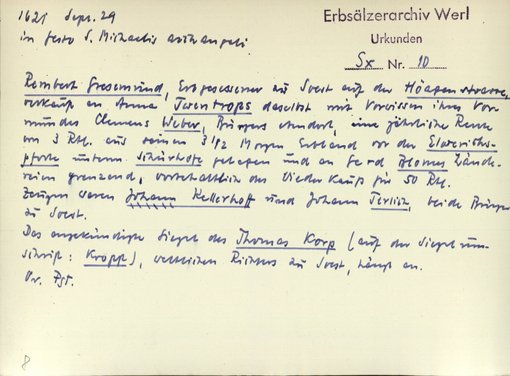 1621 Sept. 29
in festo S. Michaelis archangeli.
Erbsälzerarchiv Werl
Urkunden
Sx Nr. 10
Rembert Gresemund, Erbgesessener zu Soest auf der Höggenstrasse,
verkauft an Anna Twentrops daselbst mit Vorwissen ihres Vor-
mundes Clemens Weber, Bürgers etendort, eine jährliche Rente
von 3 Rtl. aus seinen 3 1/2 Morgen Erbland vor der Elverichs-
pforte unterm Schürhofe gelegen und an Gerd Blomes Lände-
reien grenzend, vorbehaltlich des Wiederkaufs für 50 Rtl.
Zeugen waren Johann Kellerhoff und Johann Serlich, beide Bürger
zu Soest.
Das angekündigte Siegel des Thomas Korp (auf der Siegelum-
schrift: Kropp), weltlichen Richters zu Soest, hängt an.
Or. Pgt.
8